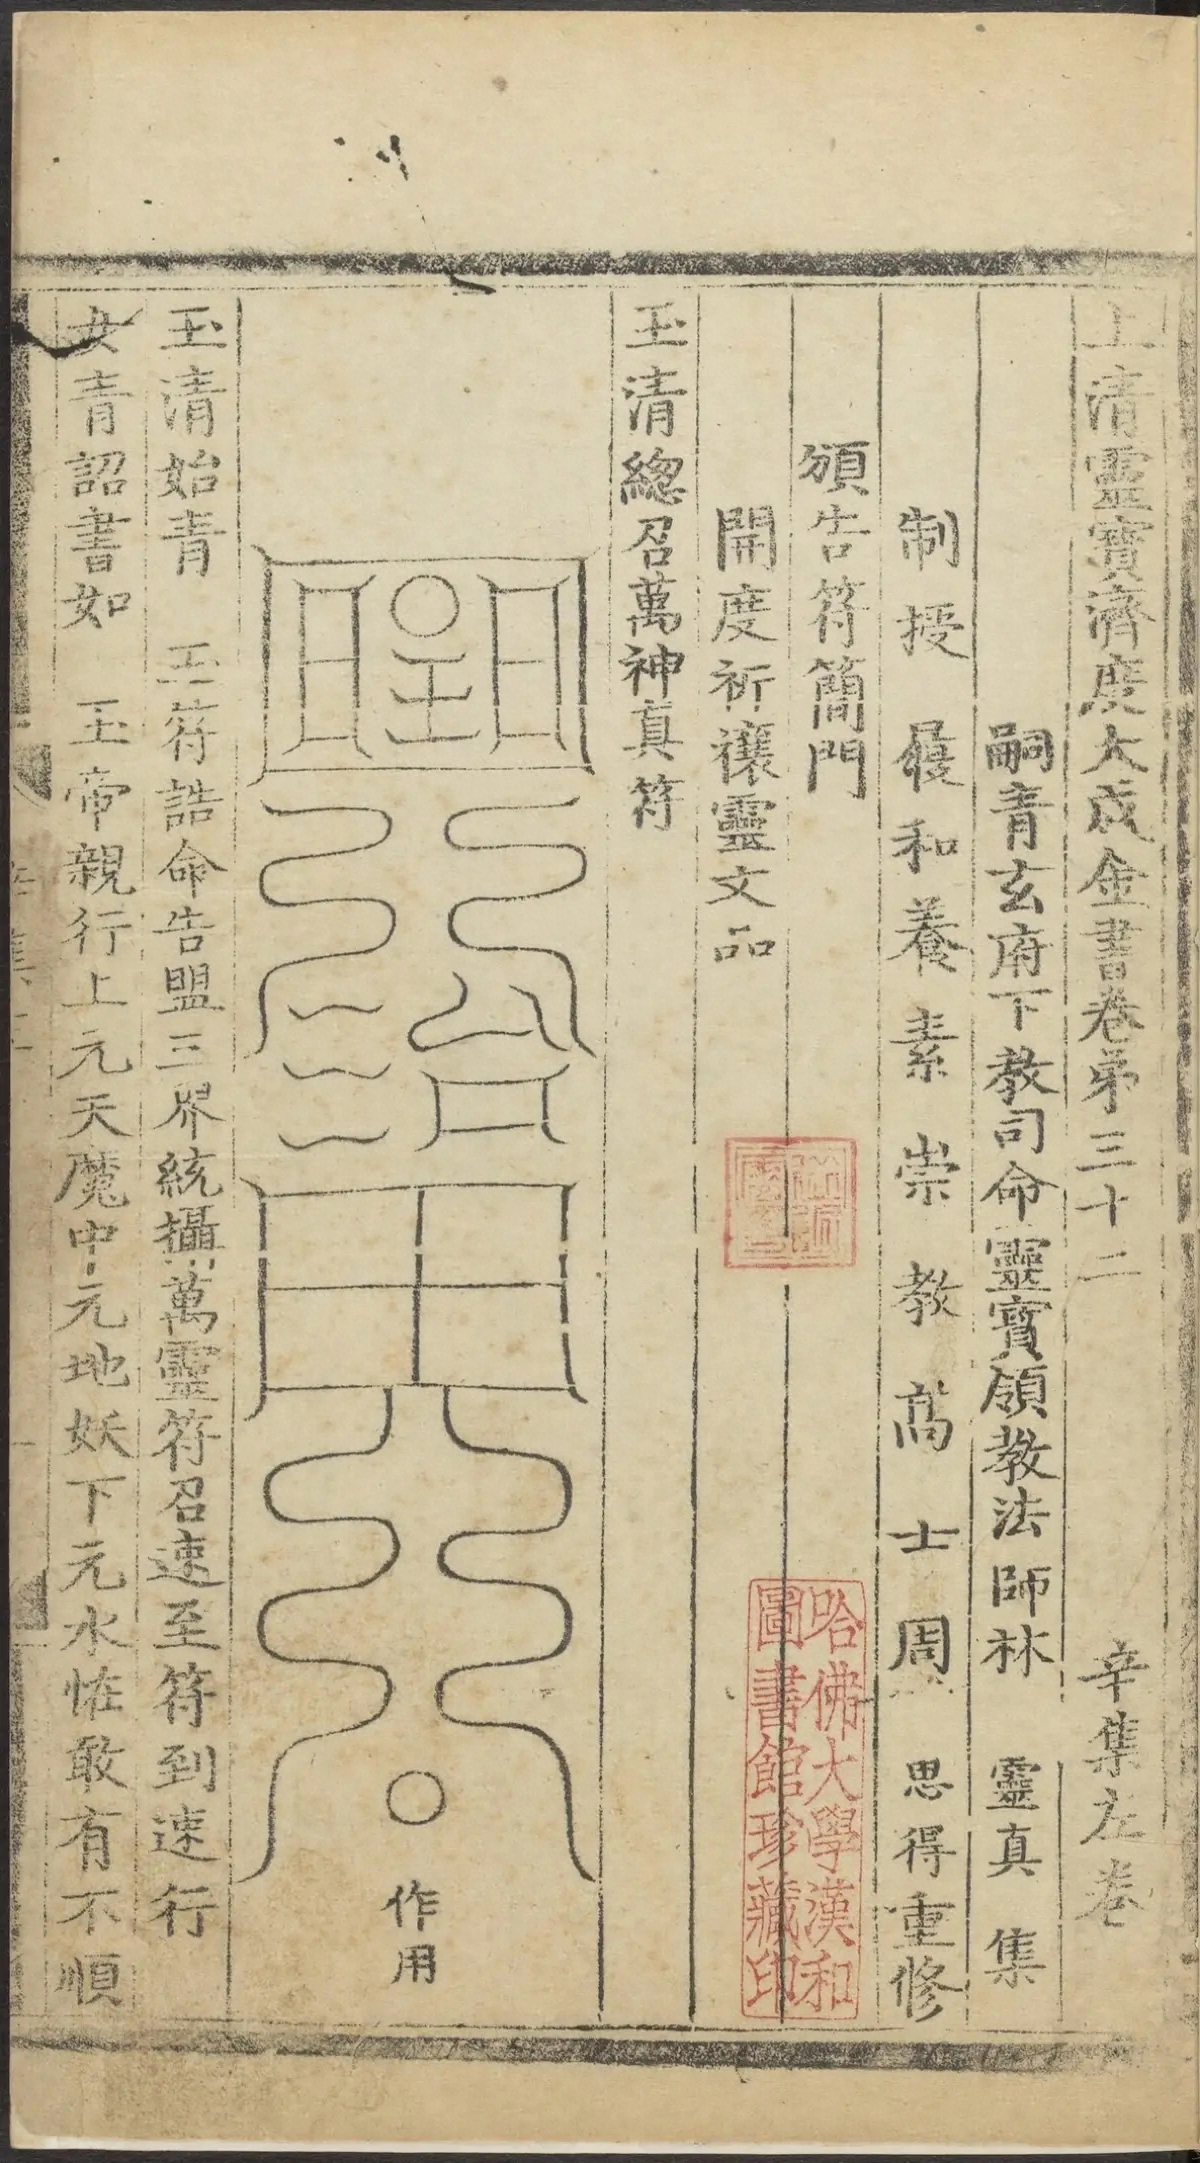 上清靈寶濟度大成金書卷第三十二 辛集左卷
嗣青玄府下教司命靈寶領教法師林 靈真 集
制授履和養素崇教高士周 思得重修
頒告符簡門
開度祈禳靈文品
哈佛大學漢和
圖書館珍藏印
玉清總召萬神真符
作用
玉清始青 玉符誥命告盟三界統攝萬靈符召速至符到速行
女青詔書如 玉帝親行上元天魔中元地妖下元水怪敢有不順